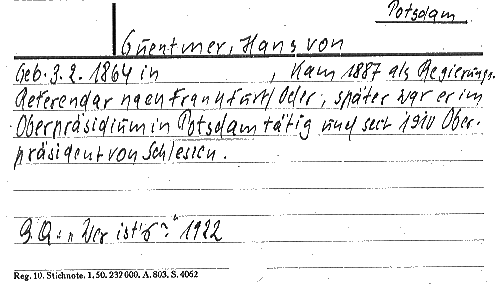 Potsdam
Guentner, Hans von
Geb. 3. 2. 1864 in , kam 1887 als Regierungs-
Referendar nach Frankfurt/Oder, später war er im
Oberpräsidium in Potsdam tätig und seit 1910 Ober-
präsident von Schlesien.
Q.Q.: „Wer ist's?" 1922
Reg. 10. Stichnote. 1, 50. 232 000. A. 803. S. 4062